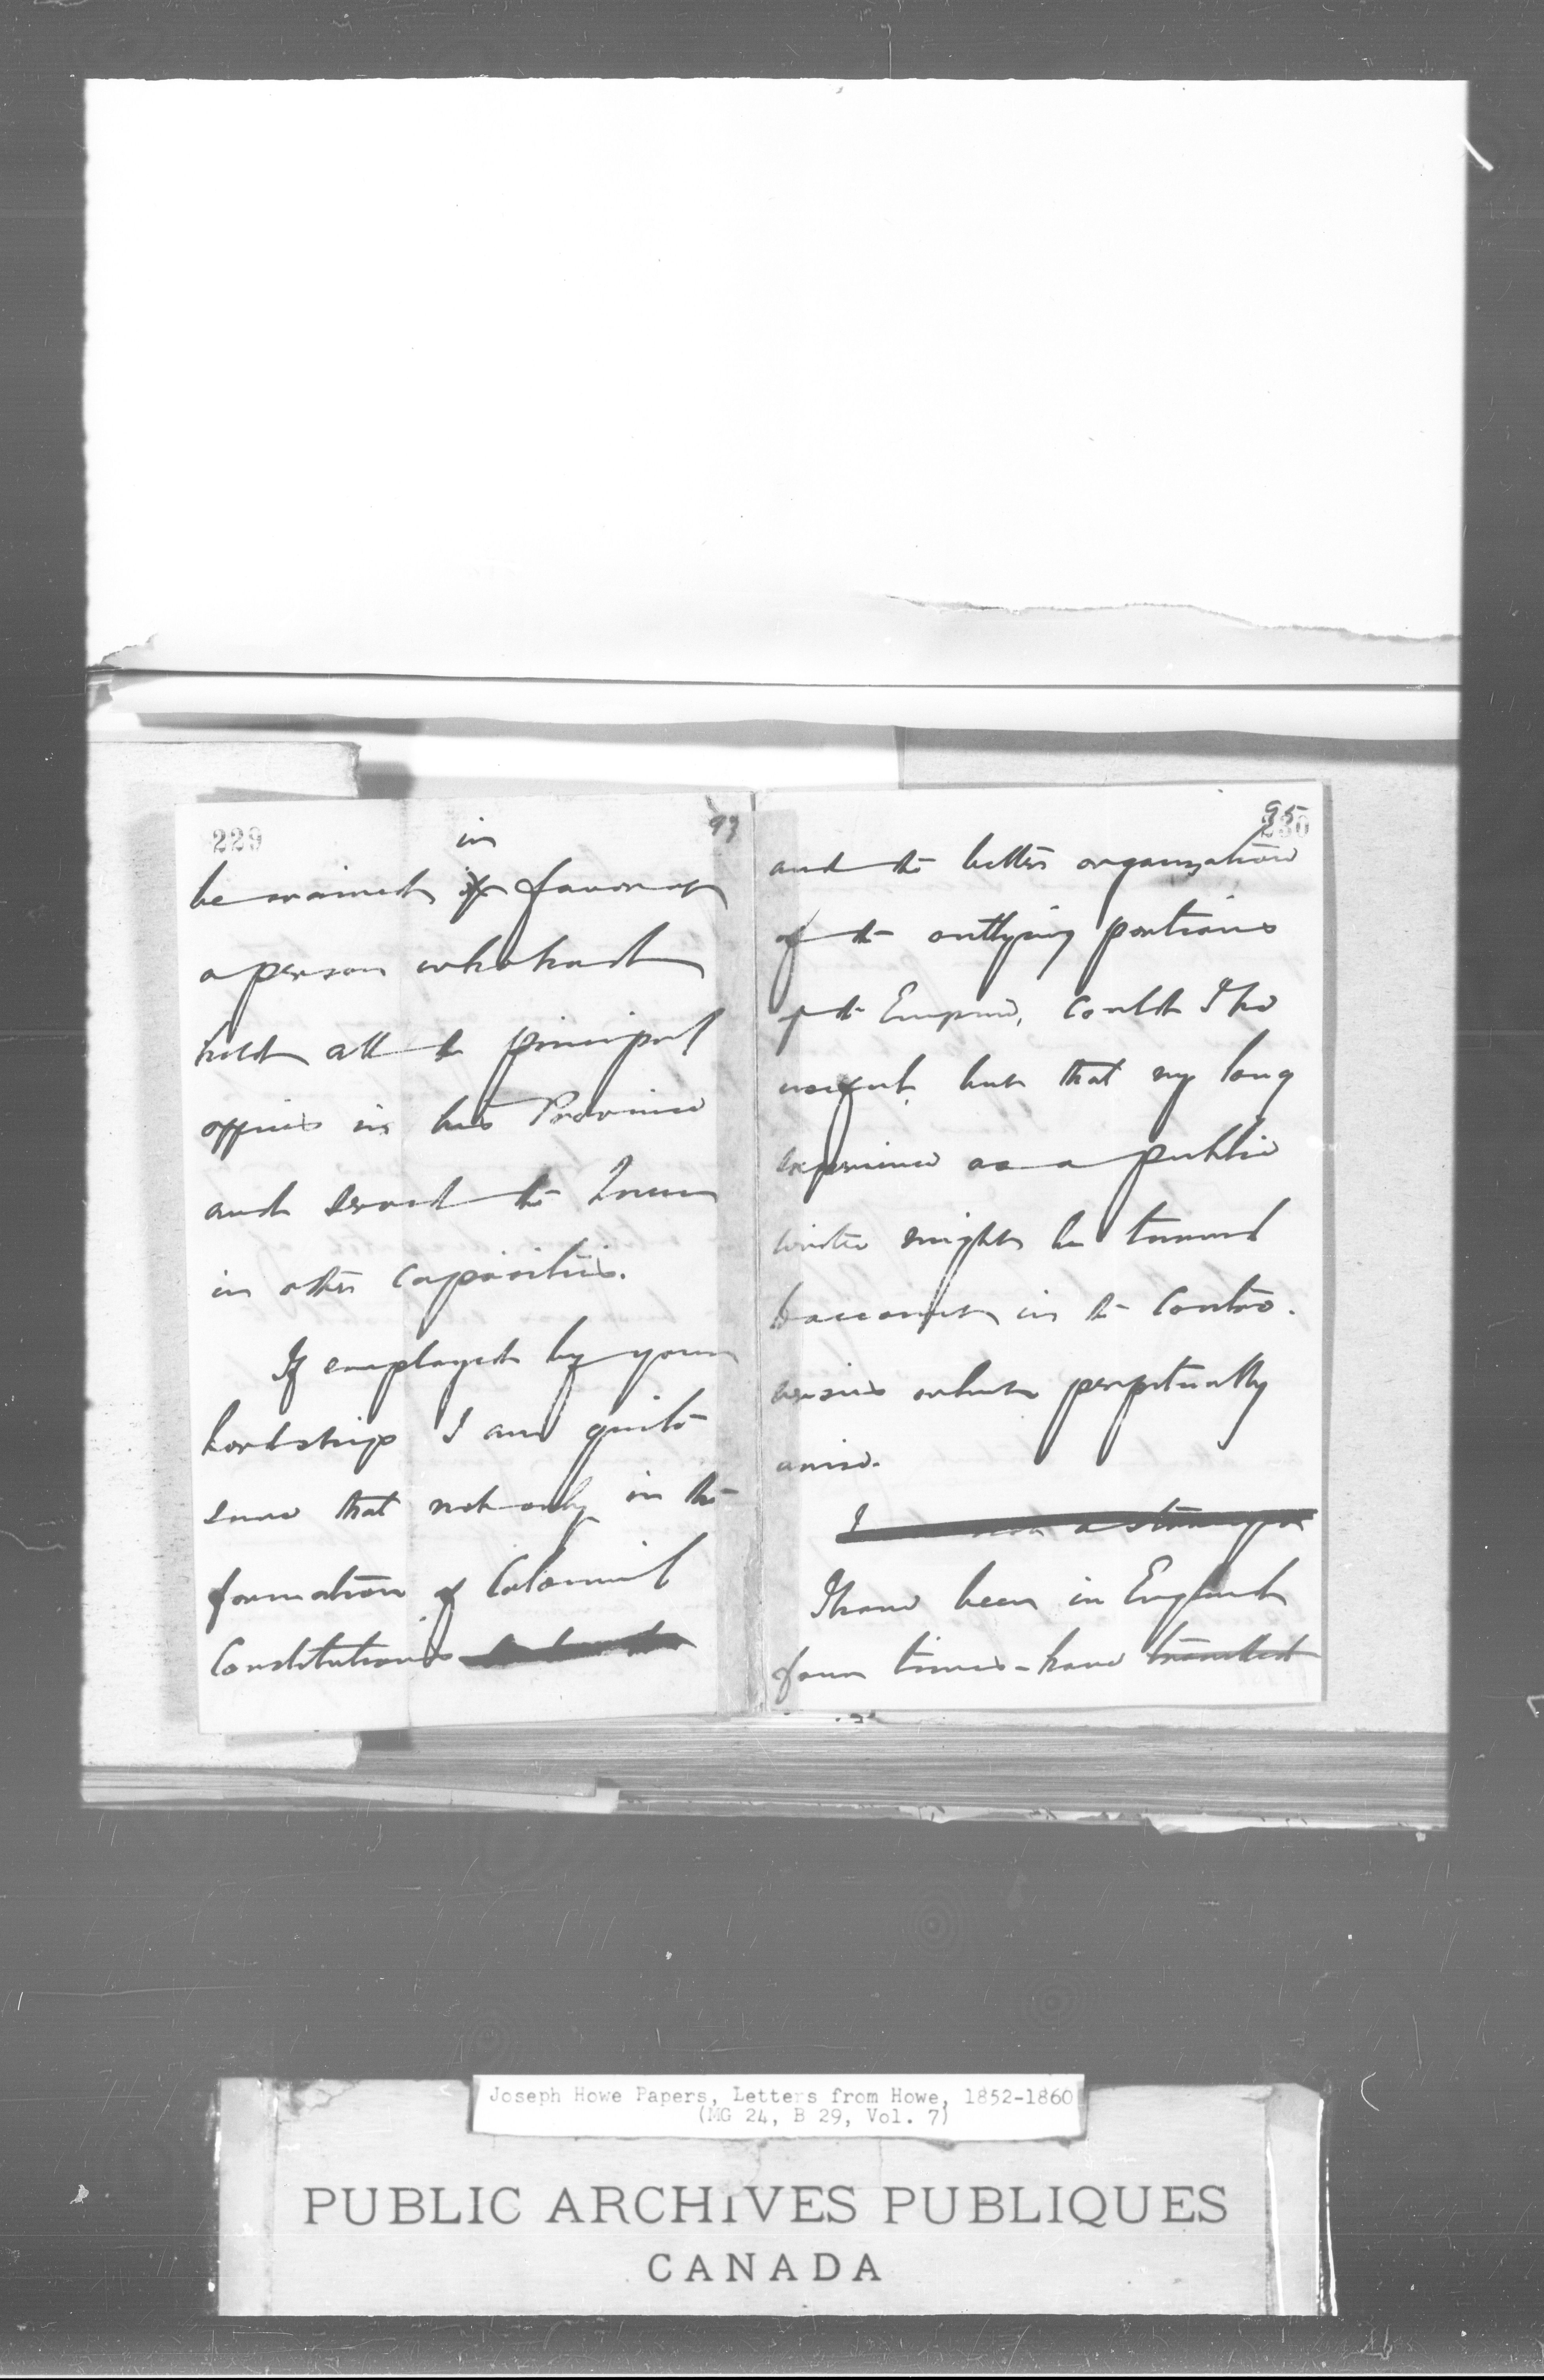 229
93
in
be waived if favor of
a person who had
held all the principal
offices in his Province
and served the Queen
in other capacities.
If employed by your
Lordship I am quite
sure that not only in the
formation of Colonial
Constitutions
95
230
and the better organization
of the outlying portions
of the Empire, could I be
useful but that my long
experience as a public
writer might be turned
to account in the contro-
versies which perpetually
arise.
I am not a stranger
I have been in England
four times - have travelled
Joseph Howe Papers, Letters from Howe, 1852-1860
(MG 24, B 29, Vol. 7)
PUBLIC ARCHIVES PUBLIQUES
CANADA